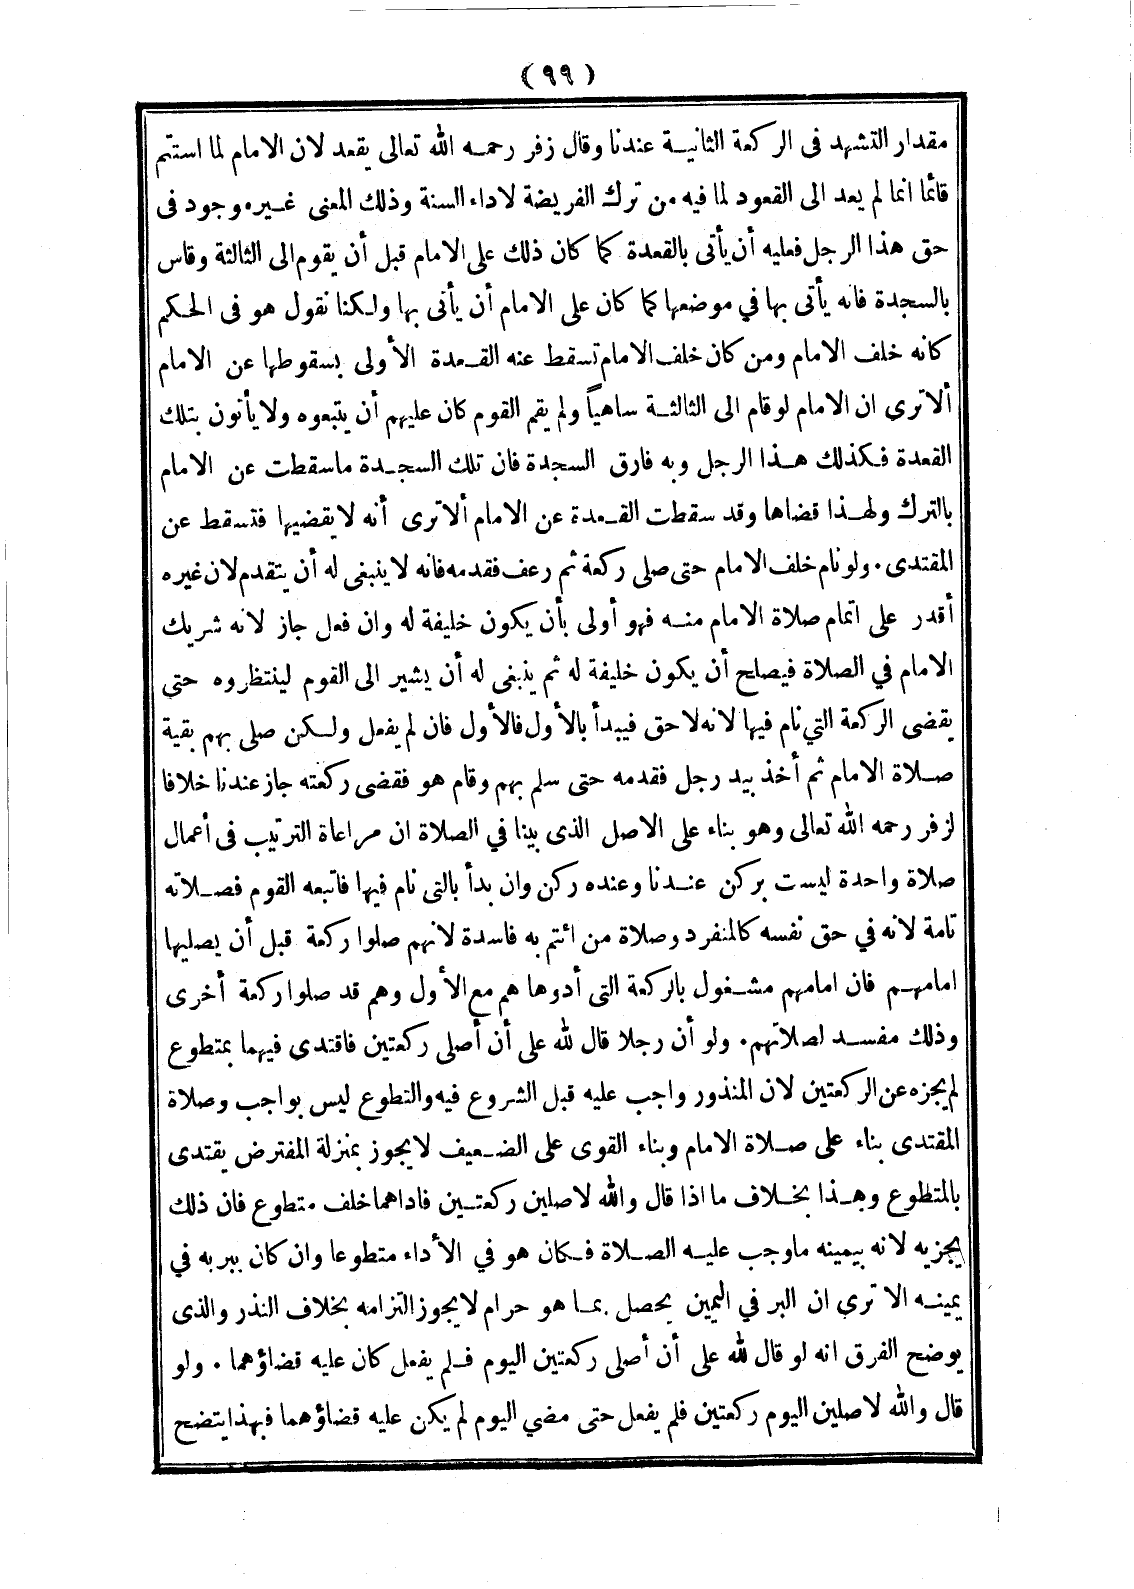 (٩٩)
مقدار التشهد فى الركعة الثانية عندنا وقال زفر رحمه الله تعالى يقعد لان الامام لما استتم
قائما انما لم يعد الى القعود لما فيه من ترك الفريضة لاداء السنة وذلك المعنى غير موجود فى
حق هذا الرجل فعليه أن يأتى بالقعدة كما كان ذلك على الامام قبل أن يقوم الى الثالثة وقاس
بالسجدة فانه يأتى بها في موضعها كما كان على الامام أن يأتى بها ولكنا نقول هو فى الحكم
كانه خلف الامام ومن كان خلف الامام تسقط عنه القعدة الأولى بسقوطها عن الامام
ألا ترى ان الامام لو قام الى الثالثة ساهياً ولم يقم القوم كان عليهم أن يتبعوه ولا يأتون بتلك
القعدة فكذلك هذا الرجل وبه فارق السجدة فان تلك السجدة ماسقطت عن الامام
بالترك ولهذا قضاها وقد سقطت القعدة عن الامام ألا ترى أنه لا يقضيها فتسقط عن
المقتدى . ولو نام خلف الامام حتى صلى ركعة ثم رعف فقدمه فانه لا ينبغى له أن يتقدم لان غيره
أقدر على اتمام صلاة الامام منه فهو أولى بأن يكون خليفة له وان فعل جاز لانه شريك
الامام في الصلاة فيصلح أن يكون خليفة له ثم ينبغى له أن يشير الى القوم لينتظروه حتى
يقضى الركعة التي نام فيها لانه لاحق فيبدأ بالأول فالأول فان لم يفعل ولكن صلى بهم بقية
صلاة الامام ثم أخذ بيد رجل فقدمه حتى سلم بهم وقام هو فقضى ركعته جاز عندنا خلافا
لزفر رحمه الله تعالى وهو بناء على الاصل الذى بينا في الصلاة ان مراعاة الترتيب فى أعمال
صلاة واحدة ليست بركن عندنا وعنده ركن وان بدأ بالتى نام فيها فاتبعه القوم فصلاته
تامة لانه في حق نفسه كالمنفرد وصلاة من ائتم به فاسدة لانهم صلوا ركعة قبل أن يصليها
امامهم فان امامهم مشغول بالركعة التى أدوها هم مع الأول وهم قد صلوا ركعة أخرى
وذلك مفسد لصلاتهم . ولو أن رجلا قال لله على أن أصلى ركعتين فاقتدى فيهما بمتطوع
لم يجزه عن الركعتين لان المنذور واجب عليه قبل الشروع فيه والتطوع ليس بواجب وصلاة
المقتدى بناء على صلاة الامام وبناء القوى على الضعيف لا يجوز بمنزلة المفترض يقتدى
بالمتطوع وهذا بخلاف ما اذا قال والله لاصلين ركعتين فاداهما خلف متطوع فان ذلك
يجزيه لانه بيمينه ماوجب عليه الصلاة فكان هو في الأداء متطوعا وان كان يبر به في
يمينه الا ترى ان البر في اليمين يحصل بما هو حرام لا يجوز التزامه بخلاف النذر والذى
يوضح الفرق انه لو قال لله على أن أصلى ركعتين اليوم فلم يفعل كان عليه قضاؤهما . ولو
قال والله لاصلين اليوم ركعتين فلم يفعل حتى مضي اليوم لم يكن عليه قضاؤهما فبهذا يتضح